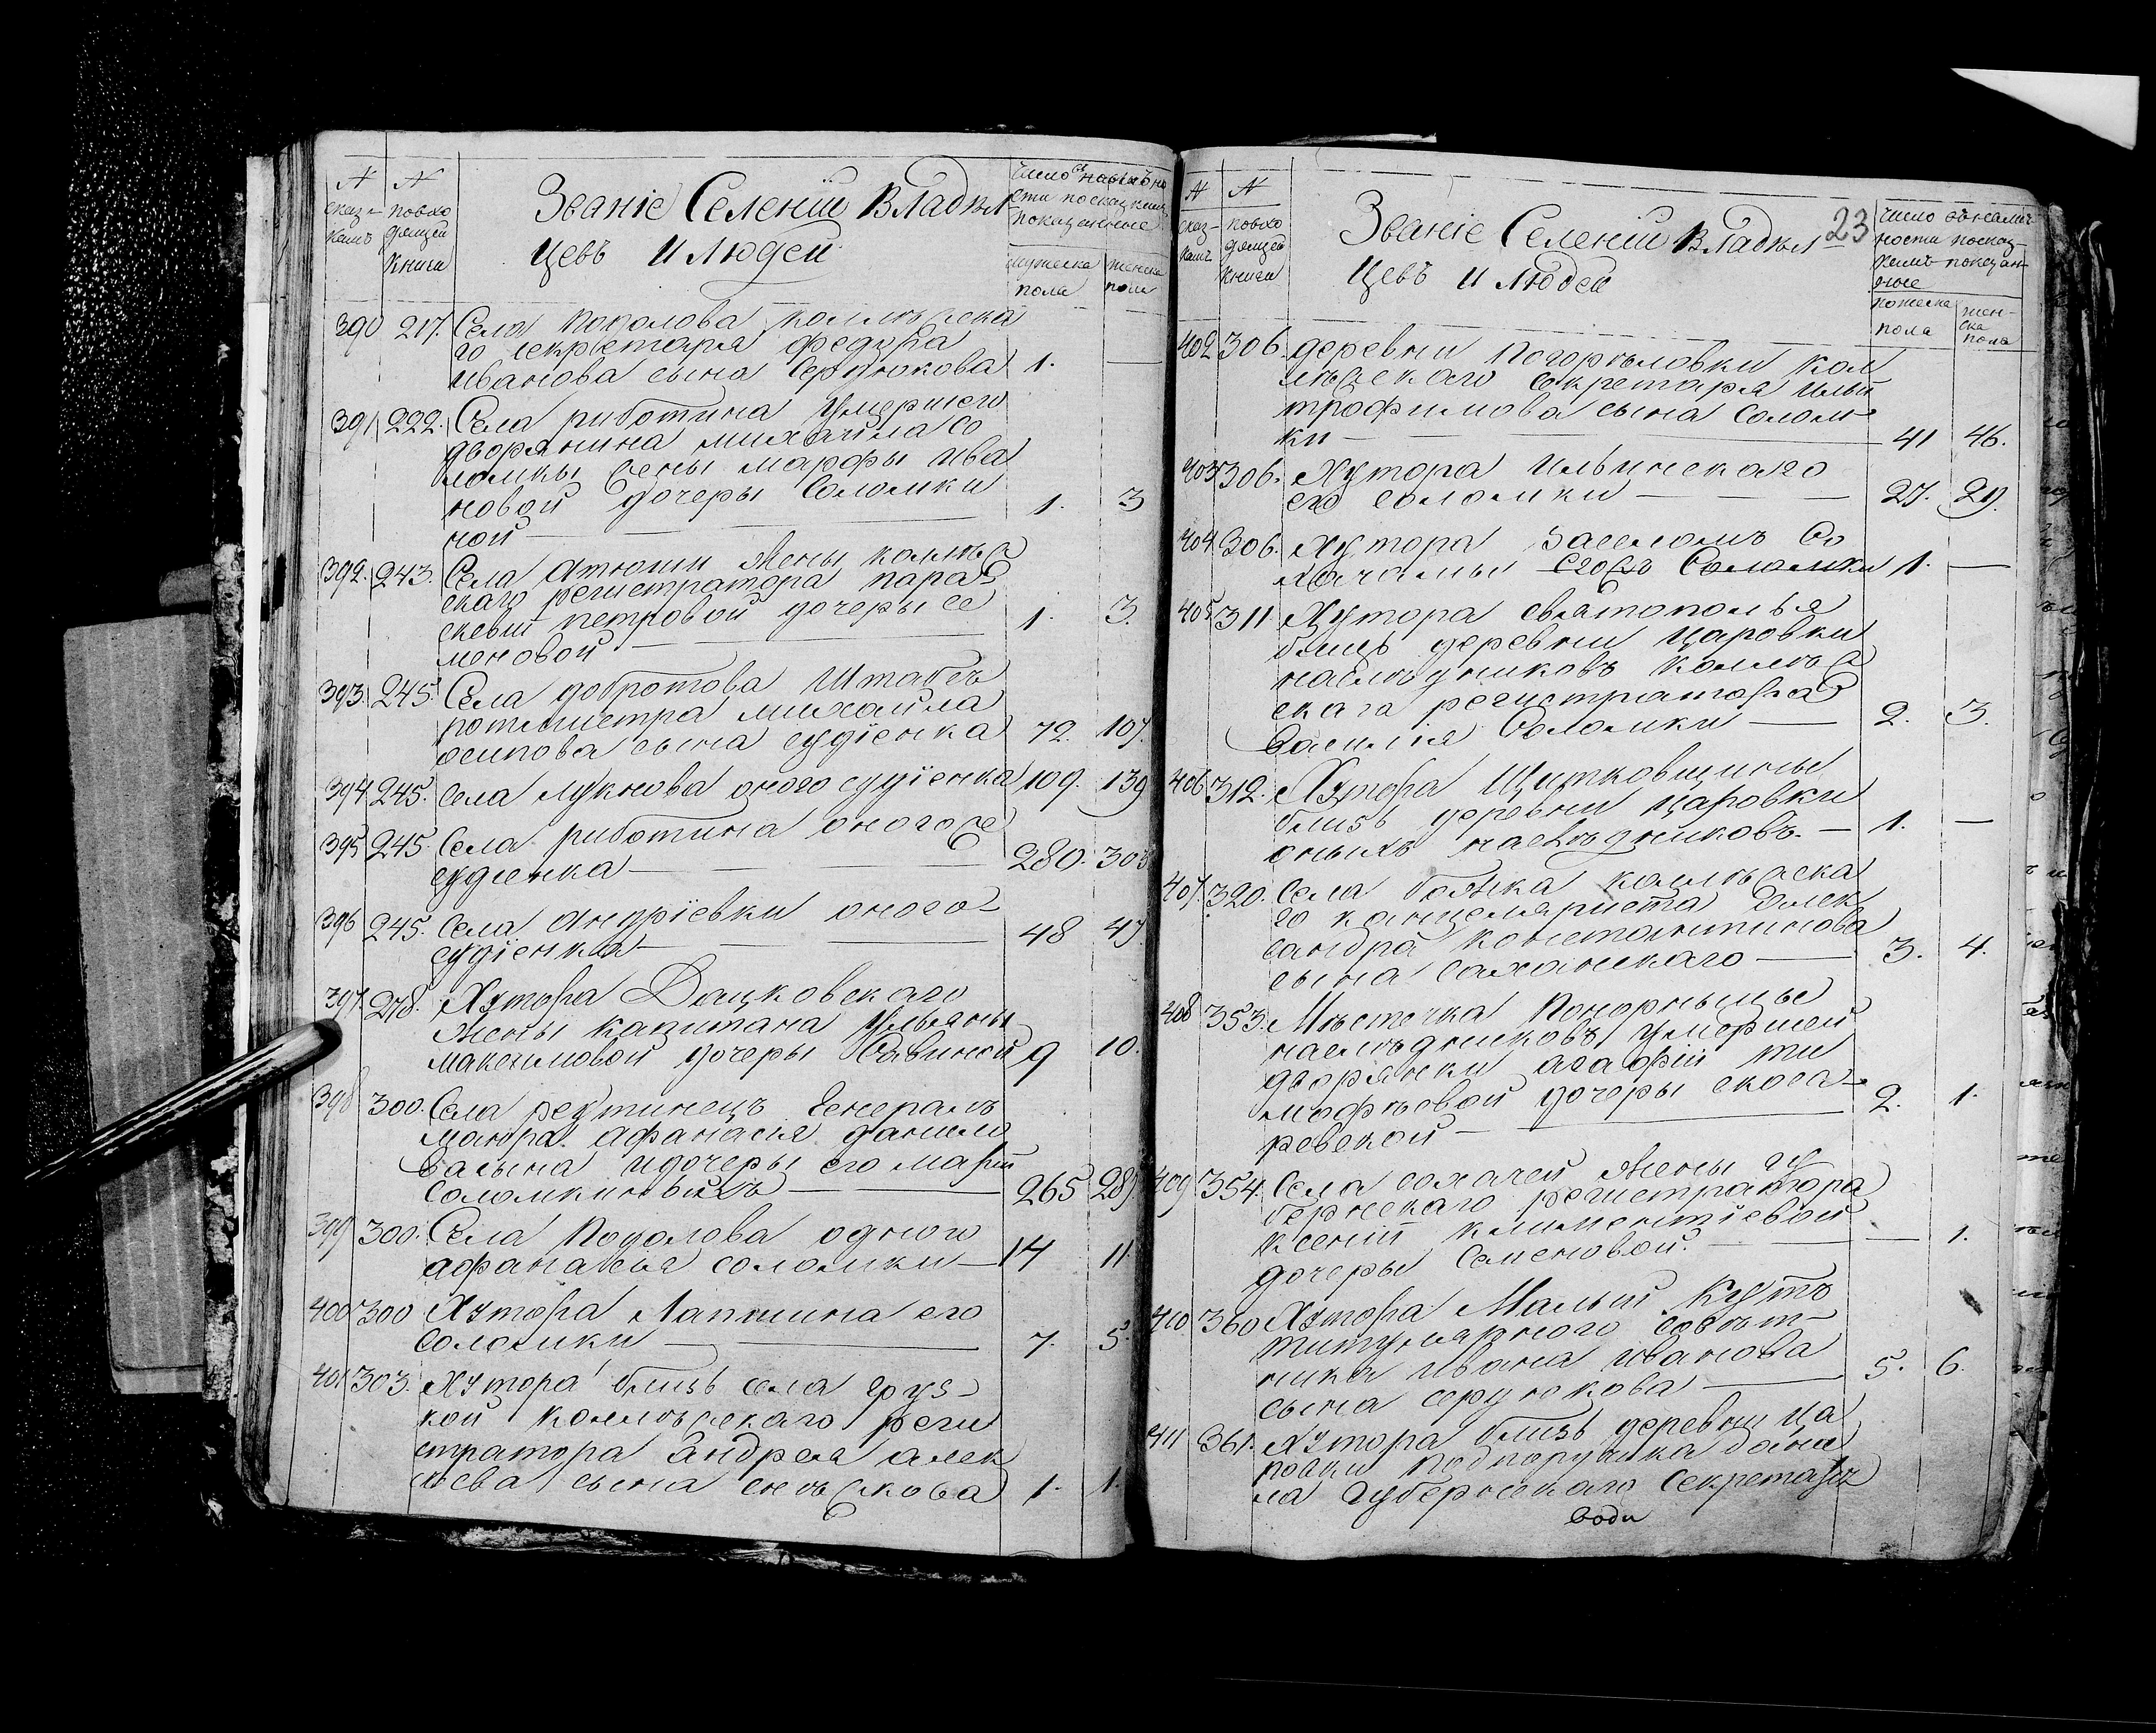 № № Званіе Селеній Владѣл число въ наличности по сказкамъ показанные
сказкамъ по входящей книги цевъ и людей мужеска пола женска пола
390 217. Села Подолова коллежска
го секретаря федора
иванова сына Сердюкова 1. —
391 222. Села риботина умершего
дворянина михайла со
ломки жены марфы ива
новой дочеры Соломки
ной — 1. 3
392. 243. Села Атюши жены коллеж
скаго регистратора парас
скевіи петровой дочеры се
меновой — 1. 3.
393. 245. Села добротова Штабсъ
ротмистра михайла
осипова сына судіенка 72. 107.
394 245. Села лукнова оного судіенка 109. 139
395 245. Села риботина оного же
судіенка — 280. 303
396 245. Села Андріевки оного
судіенка — 48 47.
397. 278. Хутора Дацковскаго
жены капитана Ульяны
максимовой дочеры Савиной 9 10.
398 300. Села рехтинецъ Генералъ
маиора афанасія данило
ва сына идочеры его маріи
Соломкиныхъ — 265 289.
399 300. Села Подолова одного
афанасія соломки — 14 11
400 300 Хутора Лапшина его
Соломки — 7. 5.
401 303. Хутора близь села груз
кой коллежскаго реги
стратора андрея алек
сѣева сына 1. 1.
23
№ № Званіе Селеній Владѣл число въ наличности по сказкамъ показанные
сказкамъ по входящей книги цевъ и людей пола женска пола
402 306. деревни Погорѣловки кол
лежскаго секретаря ильи
трофимова сына солом
ки — 41 46.
403 306. Хутора Ильинскаго
его соломки — 27. 29.
404 306. Хутора заселомъ Со
хачамы его жъ Соломки 1. —
405 311 Хутора святополья
близь деревни царовки
наслѣдниковъ коллеж
скага регистратора
Василія Соломки — 2. 3.
406 312. Хутора Щитковщины
близь деревни царовки
оныхъ наслѣдниковъ. — 1. —
407. 320. Села божка коллежска
го канцеляриста алек
сандра константинова
сына саханскаго — 3. 4.
408 353. Мѣстечка Понорницы
наслѣдниковъ умершей
дворянки агафіи ти
мофѣевой дочеры скоса
ревской — 2. 1.
409 354. Села сохачей жены гу
бернскаго регистратора
Ксеніи климентіевой
дочеры Семеновой. — — 1.
410 360 Хутора Малый Кутъ
титулярного совѣт
ника ивана иванова
сына сердюкова — 5. 6.
411 361. Хутора близь деревни ца
ровки подпоручика дани
ла губернскаго секретаря
води